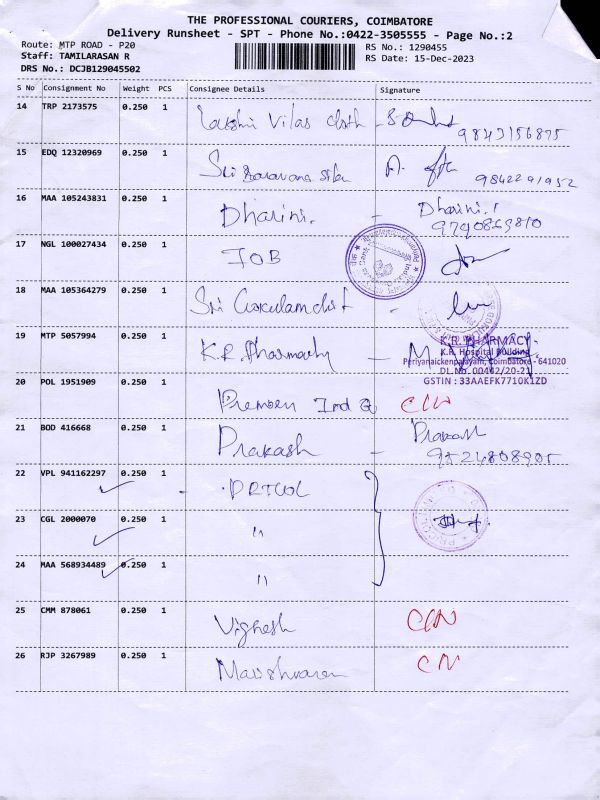 THE PROFESSIONAL COURIERS, COIMBATORE
Delivery Runsheet - SPT - Phone No.:0422-3505555 - Page No.:2
Route: MTP ROAD - P20
RS No.: 1290455
Staff: TAMILARASAN R
RS Date: 15-Dec-2023
DRS No.: DCJB129045502
S No Consignment No Weight PCS Consignee Details Signature
14 TRP 2173575 0.250 1 Lakshmi Vilas cloth -
9843156875
15 EDQ 12320969 0.250 1 Sri Saravana
9842291952
16 MAA 105243831 0.250 1 Dharini. - Dharini.
9790869810
17 NGL 100027434 0.250 1 IOB
18 MAA 105364279 0.250 1 Sri -
19 MTP 5057994 0.250 1 K.R. Pharmacy -
K.R. PHARMACY
K.R. Hospital Building
Periyanaickenpalayam, Coimbatore - 641020
DL No. 00442/20-21
GSTIN : 33AAEFK7710K1ZD
20 POL 1951909 0.250 1 Ind
21 BOD 416668 0.250 1 Prakash - Prakash
9524808905
22 VPL 941162297 0.250 1 - PRICOL
23 CGL 2000070 0.250 1 "
24 MAA 568934489 0.250 1 "
25 CMM 878061 0.250 1 Vighesh
26 RJP 3267989 0.250 1 CN